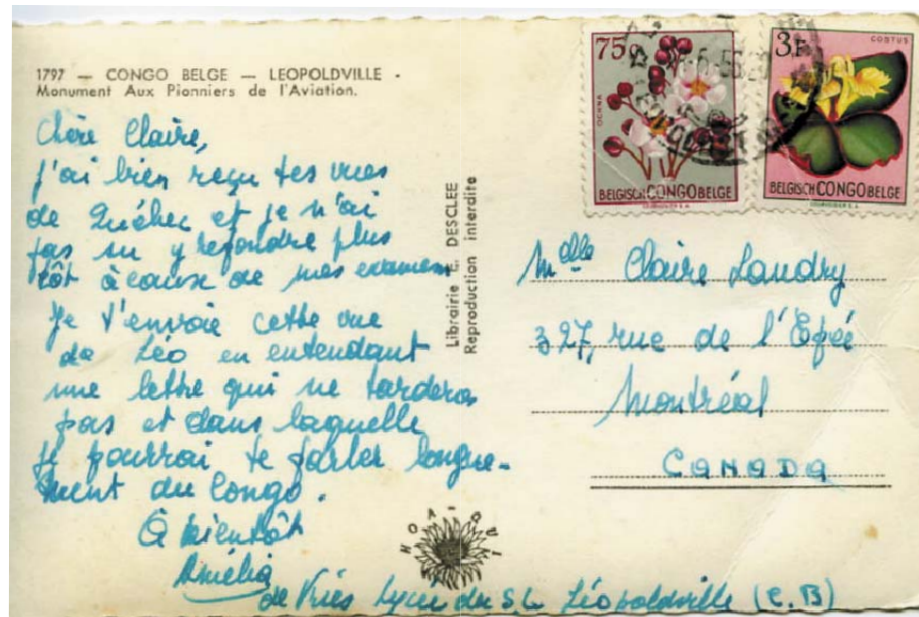 1797 — CONGO BELGE — LEOPOLDVILLE -
Monument Aux Pionniers de l'Aviation.
Chère Claire,
j'ai bien reçu tes vues
de Québec et je n'ai
pas su y répondre plus
tôt à cause de mes examens
Je t'envoie cette vue
de Léo en entendant
une lettre qui ne tardera
pas et dans laquelle
je pourrai te parler longue-
ment du Congo.
À bientôt
Amélia
de Vries Lycée du S.C. Léopoldville (C.B)
Librairie E. DESCLEE
Reproduction interdite
HOA-QUI
75c
OCHNA
BELGISCH CONGO BELGE
3F
COSTUS
BELGISCH CONGO BELGE
Mlle Claire Landry
327, rue de l'Epée
Montréal
CANADA